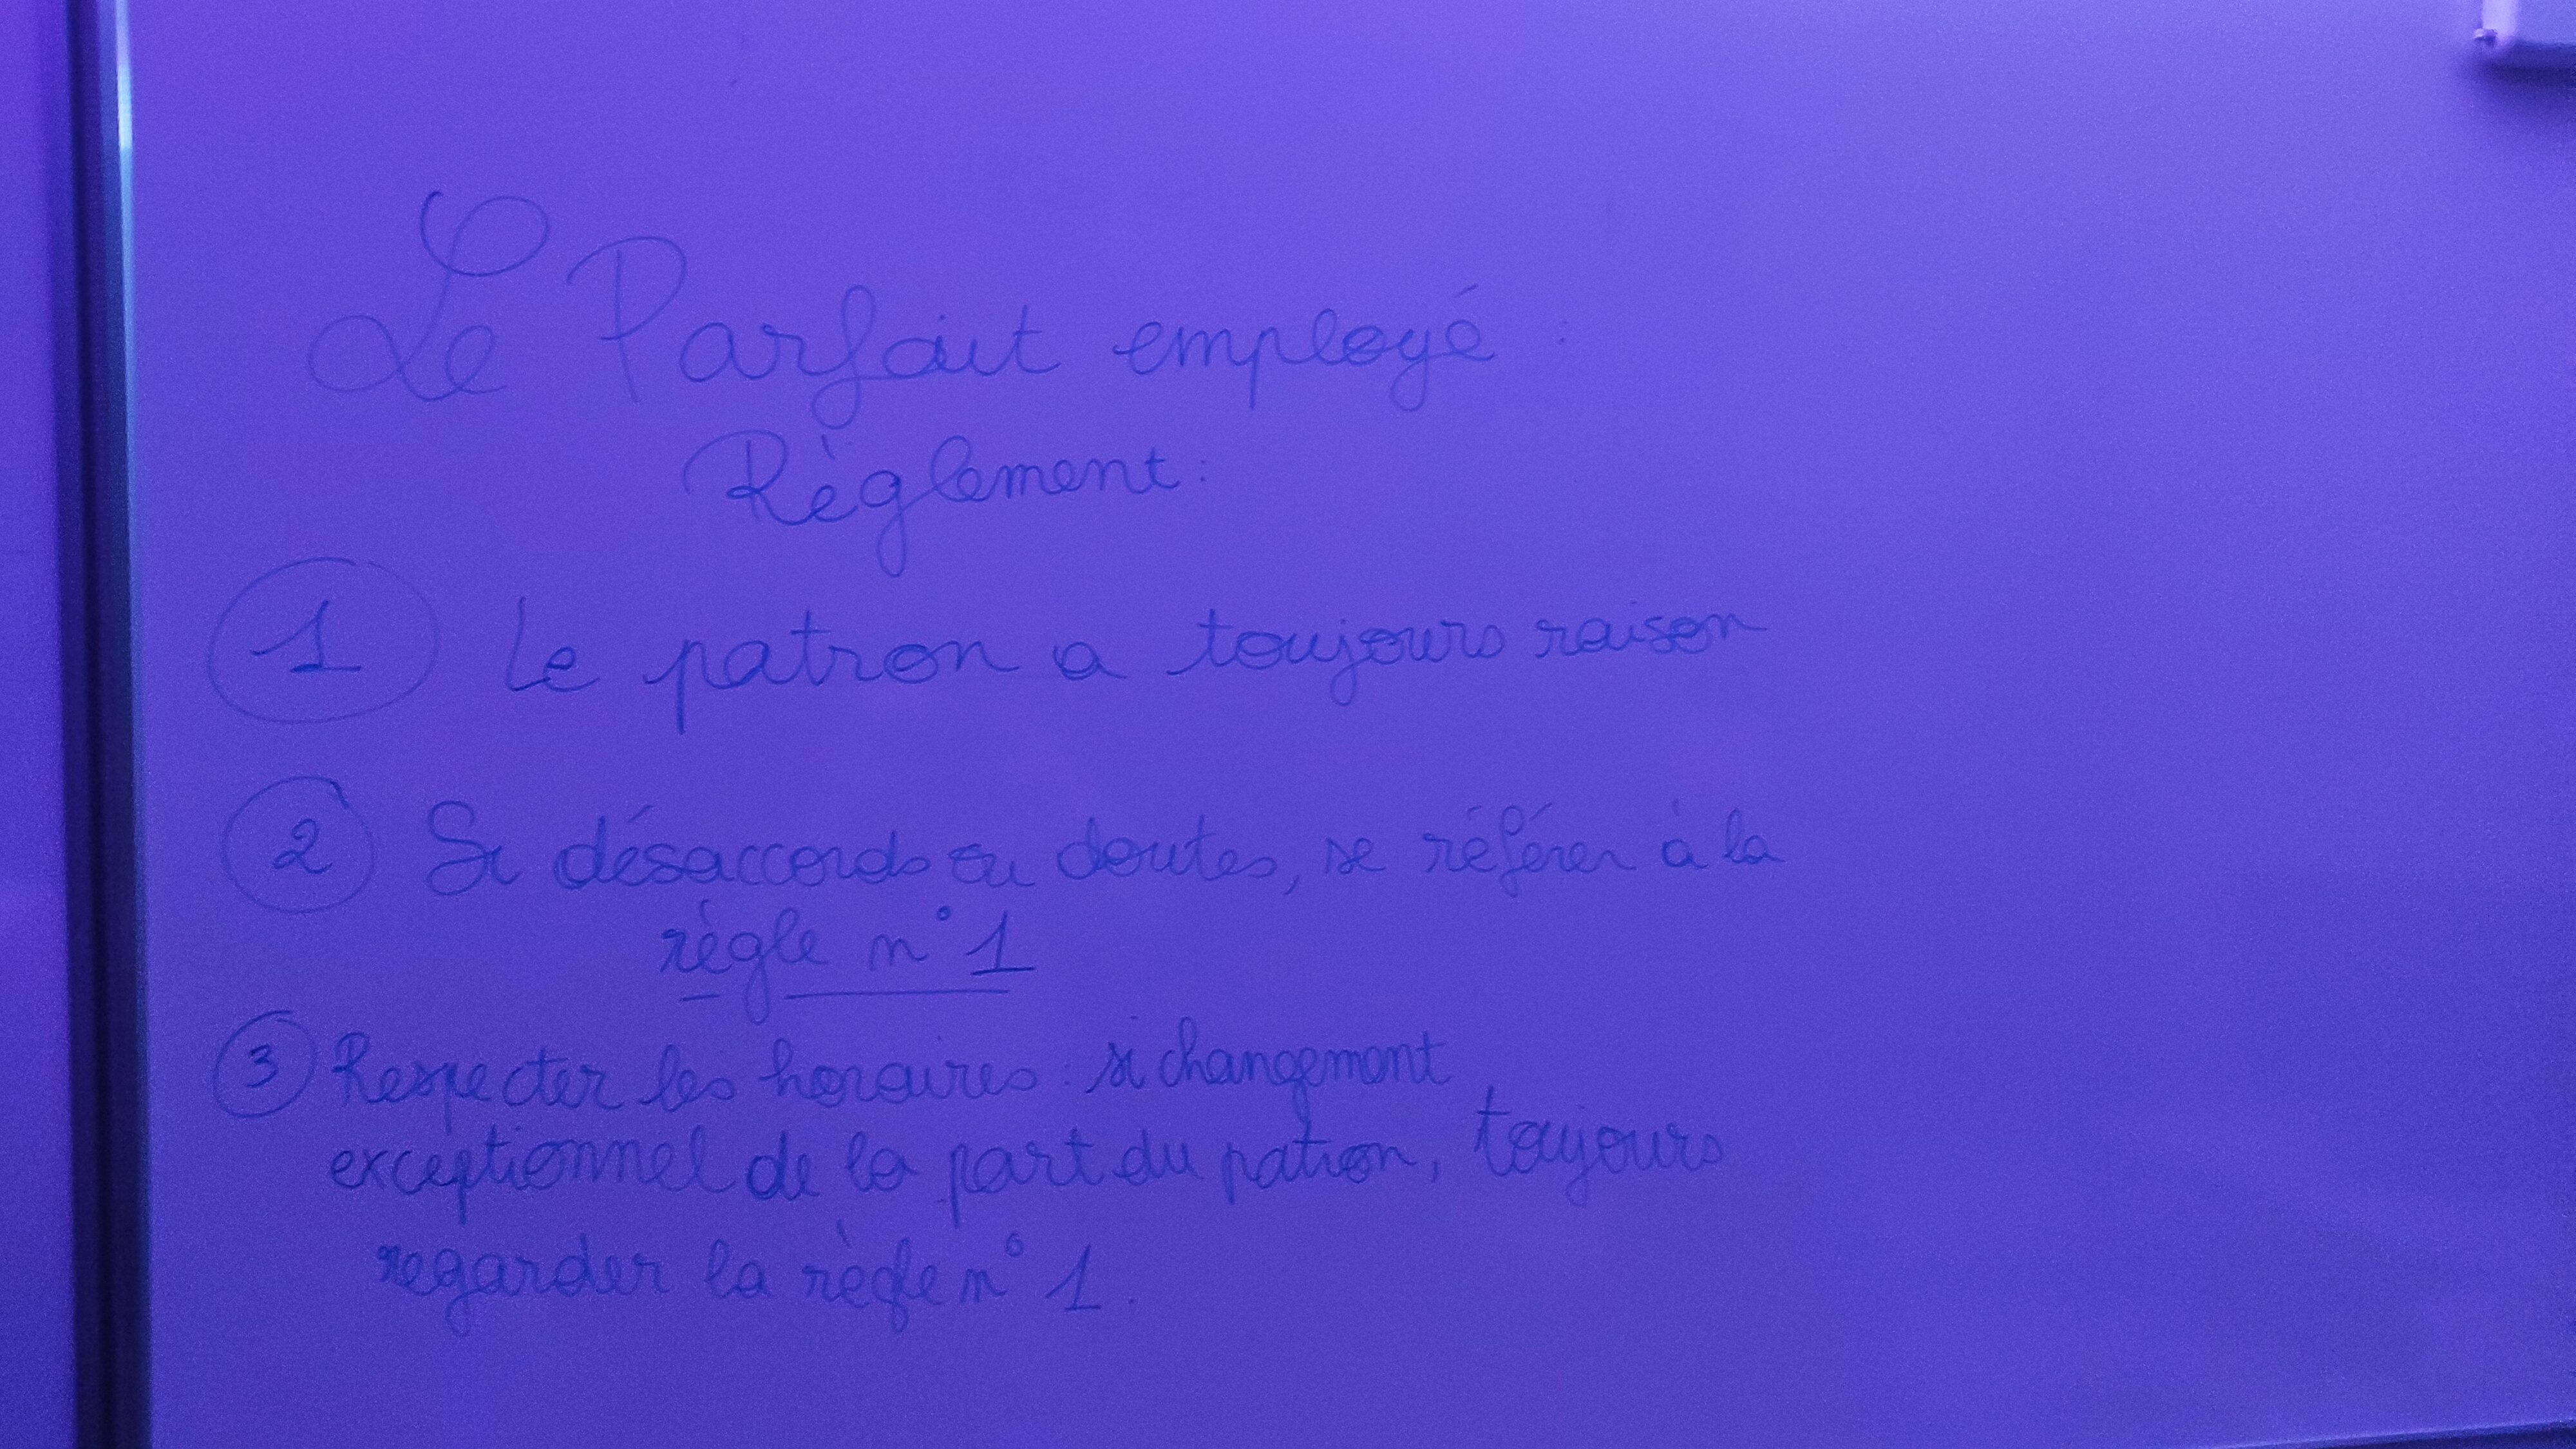 Le Parfait employé :
Règlement :
1 Le patron a toujours raison
2 Si désaccords ou doutes, se référer à la
règle n°1
3 Respecter les horaires : si changement
exceptionnel de la part du patron, toujours
regarder la règle n°1.